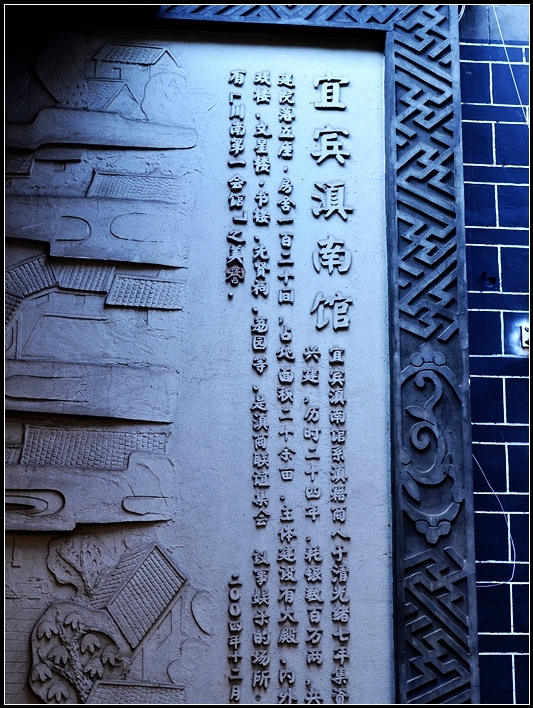 宜宾滇南馆
宜宾滇南馆系滇籍商人于清光绪七年集资
兴建，历时二十四年，耗银数百万两，共
建院落五座，房舍一百二十间，占地面积二十余亩，主体建设有大殿，内外
戏楼，文星楼，书楼，先贤祠，园等，是滇商联谊集会 议事娱乐的场所，
有“川南第一会馆”之美誉。
二〇〇四年十二月